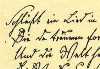 Schläft ein Lied in
Die da träumen fort
Und die Welt h